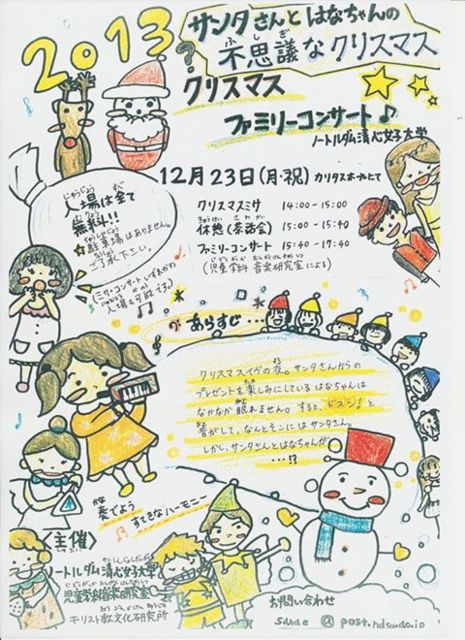 2013
サンタさんとはなちゃんの
ふしぎ
不思議なクリスマス
?
クリスマス
ファミリーコンサート♪
ノートルダム清心女子大学
12月23日(月・祝) カリタスホールにて
クリスマスミサ 14:00-15:00
休憩(茶話会) 15:00-15:40
ファミリーコンサート 15:40-17:40
(児童学科 音楽研究室による)
入場は全て
無料!!
駐車場はありません。
ご了承下さい。
(ミサ・コンサートいずれかの
入場も可能です。)
あらすじ・・・
クリスマスイヴの夜。サンタさんからの
プレゼントを楽しみにしているはなちゃんは
なかなか眠れません。すると、ドスン♪と
音がして、なんとそこにはサンタさん。
しかし、サンタさんとはなちゃんが
・・・!?
かな
奏でよう
すてきなハーモニー
<主催>
ノートルダム清心女子大学
児童学科音楽研究室
キリスト教文化研究所
お問い合わせ